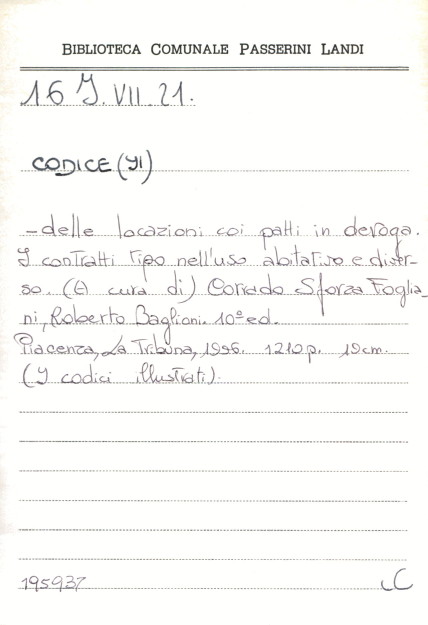 BIBLIOTECA COMUNALE PASSERINI LANDI
16 I. VII. 21.
CODICE (Il)
-delle locazioni coi patti in deroga.
I contratti tipo nell'uso abitativo e diver-
so. (A cura di) Corrado Sforza Foglia-
ni, Roberto Baglioni. 10ª ed.
Piacenza, La Tribuna, 1996. 1210 p. 19 cm.
(I codici illustrati).
195937